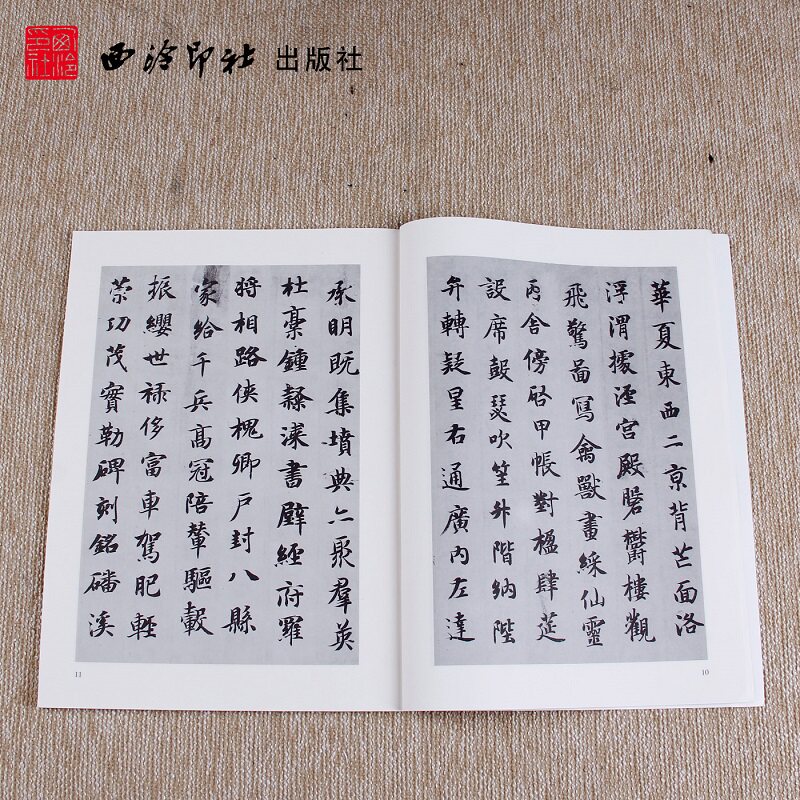 西泠印社
西泠印社 出版社
華夏東西二京背芒面洛
浮渭據涇宮殿盤鬱樓觀
飛驚啚寫禽獸畫綵仙靈
丙舍傍啓甲帳對楹肆筵
設席鼓瑟吹笙升階納陛
弁轉疑星右通廣內左達
10
承明既集墳典亦聚羣英
杜稾鍾隸漆書壁經府羅
將相路俠槐卿戶封八縣
家給千兵高冠陪輦驅轂
振纓世祿侈富車駕肥輕
策功茂實勒碑刻銘磻溪
11